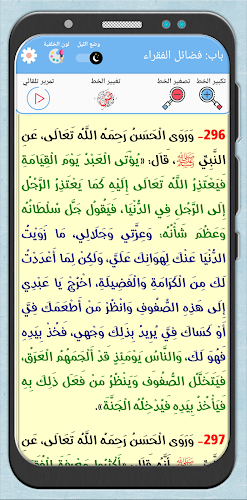 باب: فضائل الفقراء
وضع الليل
لون الخلفية
تكبير الخط
تصغير الخط
تغيير الخط
تمرير تلقائي
296- وَرَوَى الْحَسَنُ رَحِمَهُ اللَّهُ تَعَالَى، عَنِ
النَّبِيِّ ﷺ، قَالَ: «يُؤْتَى الْعَبْدُ يَوْمَ الْقِيَامَةِ
فَيَعْتَذِرُ اللَّهُ تَعَالَى إِلَيْهِ كَمَا يَعْتَذِرُ الرَّجُلُ
إِلَى الرَّجُلِ فِي الدُّنْيَا، فَيَقُولُ جَلَّ سُلْطَانُهُ
وَعَظُمَ شَأْنُهُ: وَعِزَّتِي وَجَلَالِي، مَا زَوَيْتُ
الدُّنْيَا عَنْكَ لِهَوَانِكَ عَلَيَّ، وَلَكِنْ لِمَا أَعْدَدْتُ
لَكَ مِنَ الْكَرَامَةِ وَالْفَضِيلَةِ، اخْرُجْ يَا عَبْدِي
إِلَى هَذِهِ الصُّفُوفِ وَانْظُرْ مَنْ أَطْعَمَكَ فِيَّ
أَوْ كَسَاكَ فِيَّ يُرِيدُ بِذَلِكَ وَجْهِي، فَخُذْ بِيَدِهِ
فَهُوَ لَكَ، وَالنَّاسُ يَوْمَئِذٍ قَدْ أَلْجَمَهُمُ الْعَرَقُ،
فَيَتَخَلَّلُ الصُّفُوفَ وَيَنْظُرُ مَنْ فَعَلَ ذَلِكَ بِهِ
فَيَأْخُذُ بِيَدِهِ فَيُدْخِلُهُ الْجَنَّةَ».
297- وَرَوَى الْحَسَنُ رَحِمَهُ اللَّهُ تَعَالَى، عَنِ
النَّبِيِّ ﷺ أَنَّهُ قَالَ: «أَكْثِرُوا مَعْرِفَةَ الْفُقَرَاءِ